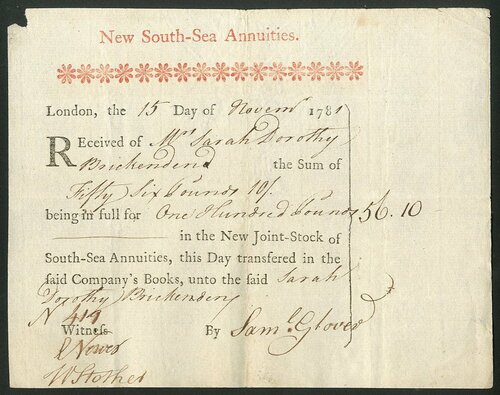 New South-Sea Annuities.
London, the 15 Day of Novemr 1781
Received of Mrs Sarah Dorothy
Brickendend the Sum of
Fifty Six Pounds 10/.
being in full for One Hundred Pounds 56. 10
in the New Joint-Stock of
South-Sea Annuities, this Day transfered in the
said Company's Books, unto the said Sarah
Dorothy Brickendend
N 414
Witness By Saml. Glover